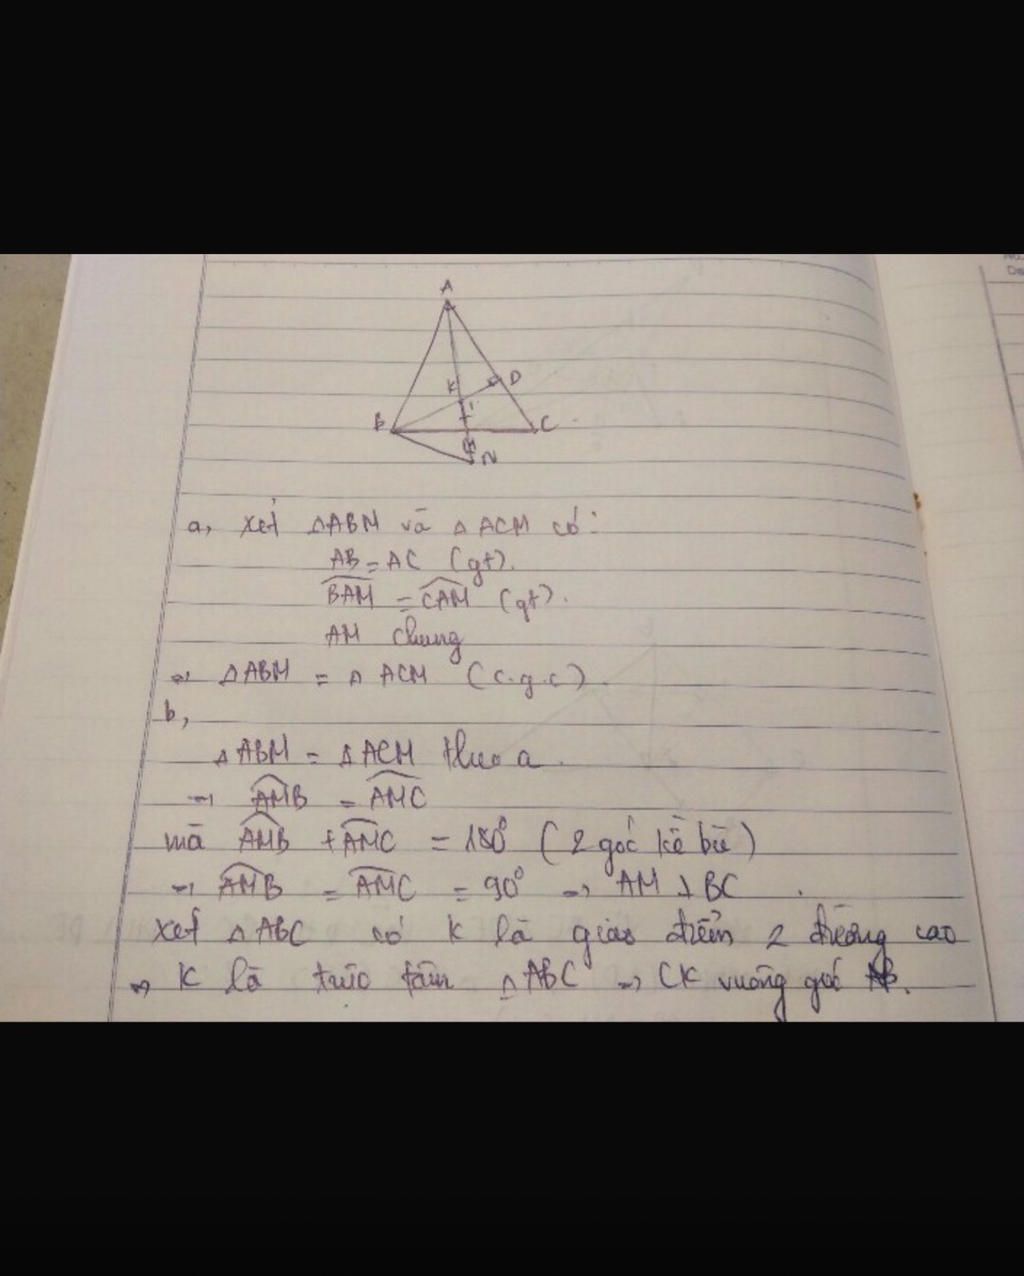 A
K
D
B
C
N
a, xét △ABM và △ACM có:
AB = AC (gt).
BAM = CAM (gt).
AM chung
⇒ △ABM = △ACM (c.g.c).
b,
△ABM = △ACM theo a.
⇒ AMB = AMC
mà AMB + AMC = 180° (2 góc kề bù)
⇒ AMB = AMC = 90° ⇒ AM ⊥ BC.
xét △ABC có K là giao điểm 2 đường cao
⇒ K là trực tâm △ABC ⇒ CK vuông góc AB.